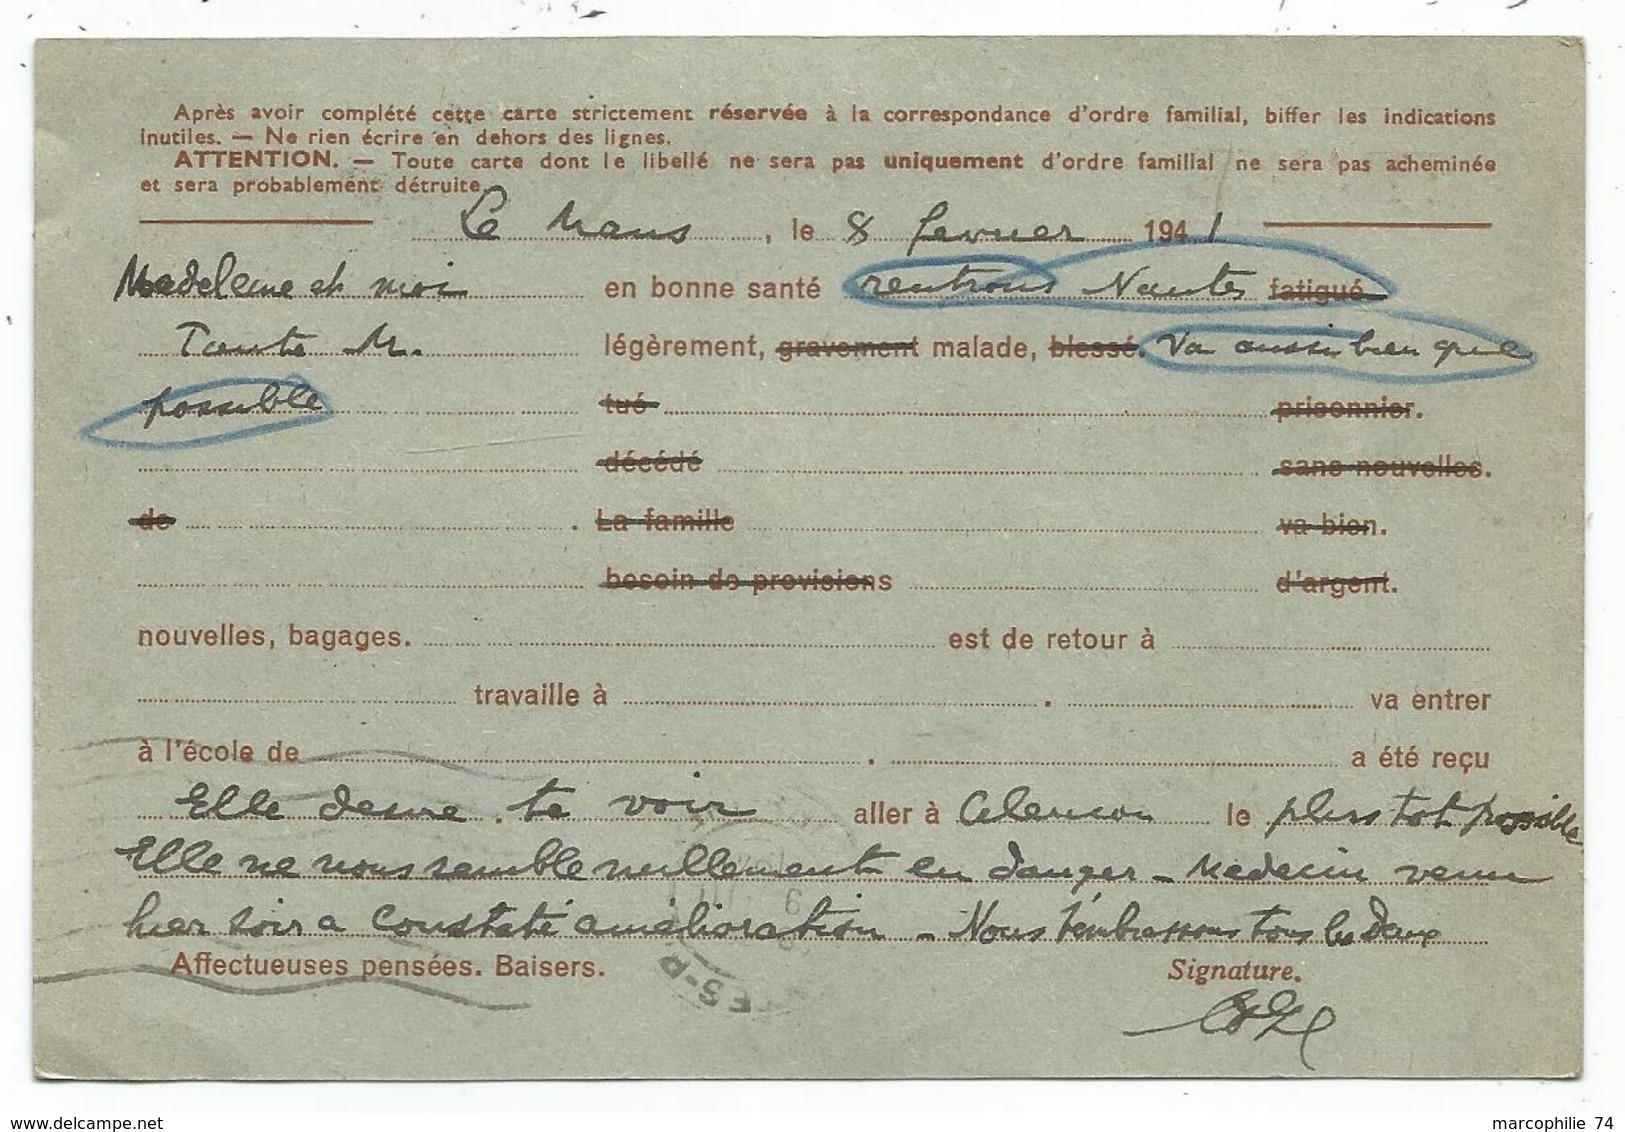 Après avoir complété cette carte strictement réservée à la correspondance d'ordre familial, biffer les indications
inutiles. — Ne rien écrire en dehors des lignes.
ATTENTION. — Toute carte dont le libellé ne sera pas uniquement d'ordre familial ne sera pas acheminée
et sera probablement détruite.
Le Mans, le 8 fevrier 1941
Madeleine et moi en bonne santé rentrons Nantes fatigué
Tante M. légèrement, gravement malade, blessé. Va aussi bien que
possible tué prisonnier.
décédé sans nouvelles.
de . La famille va bien.
besoin de provisions d'argent.
nouvelles, bagages. est de retour à
travaille à . va entrer
à l'école de . a été reçu
Elle desire . te voir aller à Alencon le plus tot possible
Elle ne nous semble nullement en danger - Medecin venu
hier soir a constaté amélioration - Nous t'embrassons tous les deux
Affectueuses pensées. Baisers. Signature.
www.delcampe.net marcophilie 74